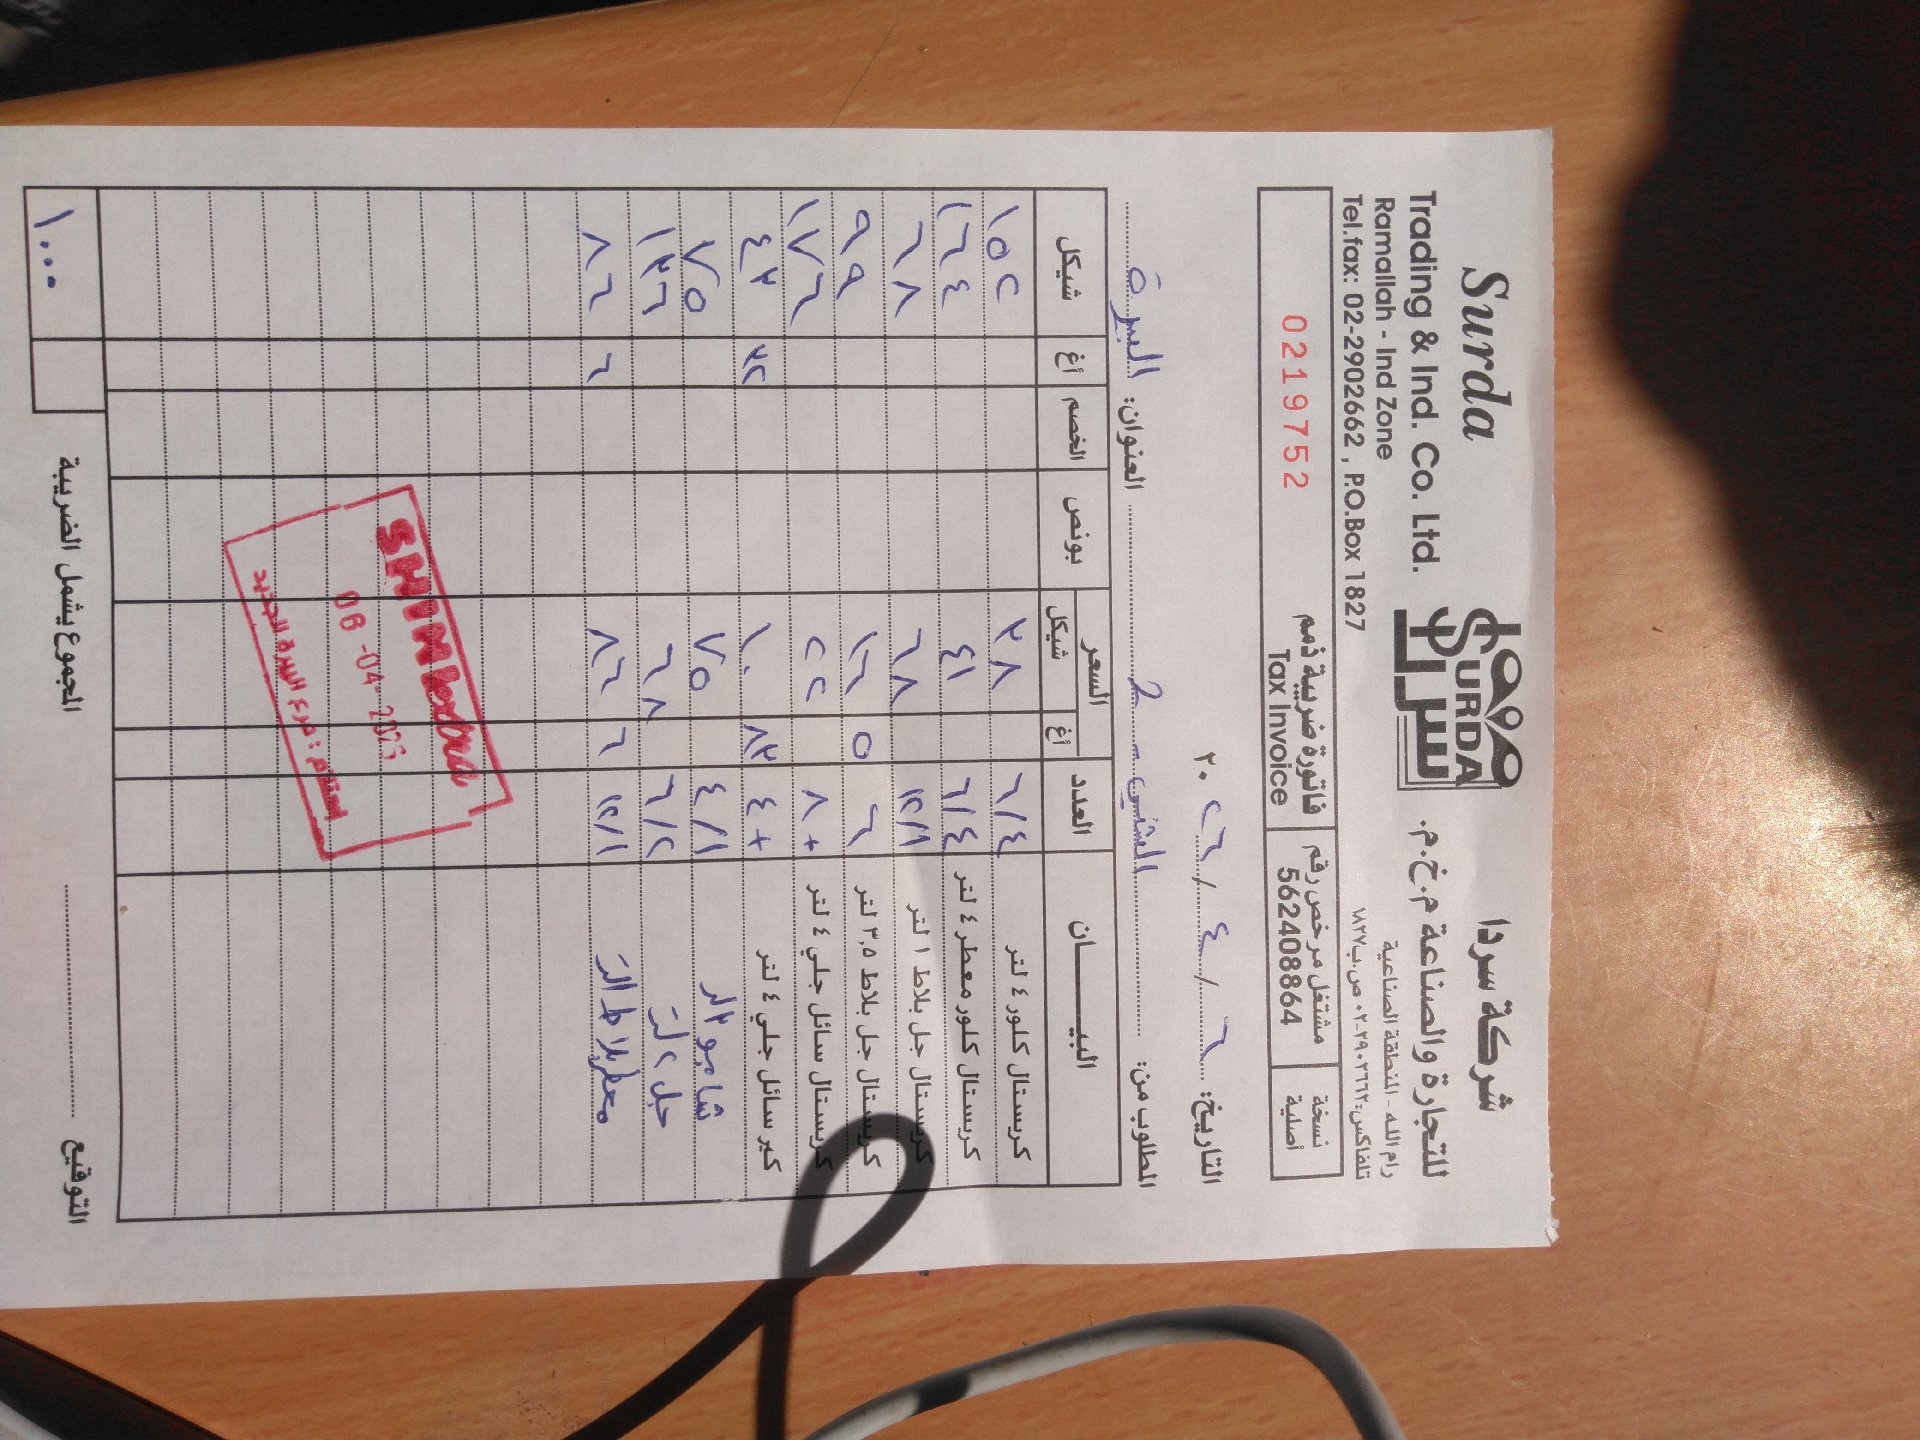 Surda
Trading & Ind. Co. Ltd.
Ramallah - Ind Zone
Tel.fax: 02-2902662 , P.O.Box 1827
SURDA
سردا
شركة سردا
للتجارة والصناعة م.خ.م.
رام الله - المنطقة الصناعية
تلفاكس: ٢٩٠٢٦٦٢-٠٢ ص.ب ١٨٢٧
0219752
فاتورة ضريبية ذمم
Tax Invoice
مشتغل مرخص رقم
562408864
نسخة
أصلية
التاريخ: ٦ / ٤ / ٢٠٢٦
المطلوب من: العنوان: البيرة
البيــــان العدد السعر بونص الخصم أغ شيكل
أغ شيكل
كريستال كلور ٤ لتر ٤/٦ ٣٨ ١٥٢
كريستال كلور معطر ٤ لتر ٤/٦ ٤١ ١٦٤
كريستال جل بلاط ١ لتر ١/١٢ ٦٨ ٦٨
كريستال جل بلاط ٣,٥ لتر ٦ ٥ ١٦ ٩٩
كريستال سائل جلي ٤ لتر ٨+ ٢٢ ١٧٦
كير سائل جلي ٤ لتر ٤+ ٨٣ ١٠ ٣٢ ٤٣
شامبو ٣لتر ١/٤ ٧٥ ٧٥
جل ٢ لتر ٢/٦ ٦٨ ١٣٦
معطر بلاط ١لتر ١/١٢ ٦ ٨٦ ٦ ٨٦
المجموع يشمل الضريبة ١٠٠٠
التوقيع